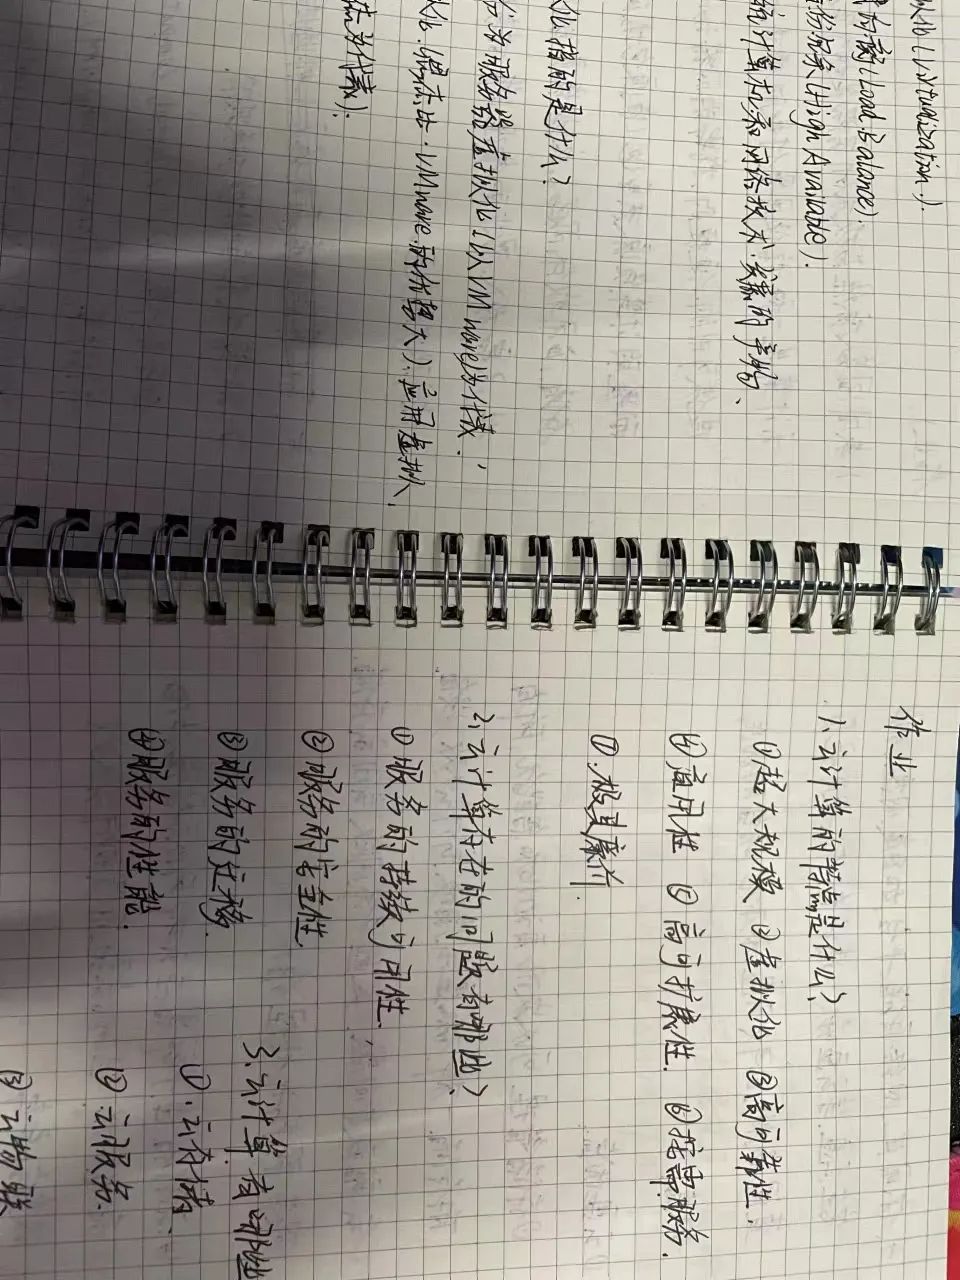 (Virtualization).
(Load Balance)
(High Available).
计算机和网络技术发展的产物、
化指的是什么?
分为服务器虚拟化(以VMware为代表.
VMware的代替大).应用虚拟
作业
1、云计算的特点是什么?
①超大规模 ②虚拟化 ③高可靠性.
④通用性 ⑤高可扩展性. ⑥按需服务.
⑦.极其廉价
2、云计算存在的问题有哪些?
①服务的持续可用性.
②服务的安全性
③服务的迁移.
④服务的性能.
3.云计算有哪些
①.云存储.
②云服务.
③云物联